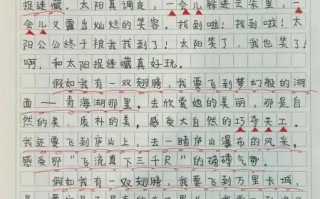 捉迷藏，太阳真调皮，一会儿躲进云朵里，一
会儿又露出灿烂的笑容。找到啦！找到啦！太
阳公公终于被我找到了！太阳笑了，我也笑了！
啊，和太阳捉迷藏真好玩。
假如我有一双翅膀，我要飞到梦幻般的湖
面——青海湖那里，去欣赏她的美丽，那是自
然的美，质朴的美，感受大自然的巧夺天工。
我还要飞到庐山上，去一睹庐山瀑布的风采，
感受那“飞流直下三千尺”的磅礴气势。
假如我有一双翅膀，我要飞到万里长城，